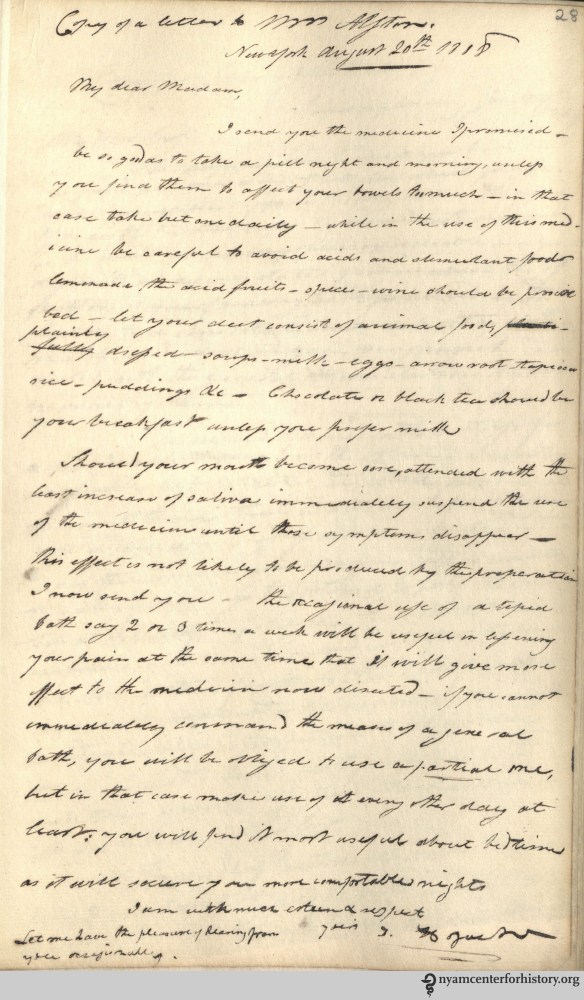 28
Copy of a letter to Mrs Alston.
New York August 20th 1818
My dear Madam,
I send you the medicine I promised –
be so good as to take a pill night and morning, unless
you find them to affect your bowels too much – in that
case take but one daily – while in the use of this med-
icine be careful to avoid acids and stimulant foods
lemonade the acid fruits – spices – wine should be
bed – let your diet consist of animal food,
plainly
dressed – soups – milk – eggs – arrow root tapioca
rice – puddings &c – Chocolate or black tea should be
your breakfast unless you prefer milk
Should your mouth become sore, attended with the
least increase of saliva immediately suspend the use
of the medicine until those symptoms disappear –
this effect is not likely to be produced by the preparation
I now send you – the occasional use of a tepid
bath say 2 or 3 times a week will be useful in lessening
your pain at the same time that it will give more
effect to the medicine now directed – if you cannot
immediately command the means of a general
bath, you will be obliged to use a partial one,
but in that case make use of it every other day at
least; you will find it most useful about bed time
as it will secure you more comfortable nights
I am with much esteem & respect
Let me have the pleasure of hearing from yours
you occasionally.
nyamcenterforhistory.org